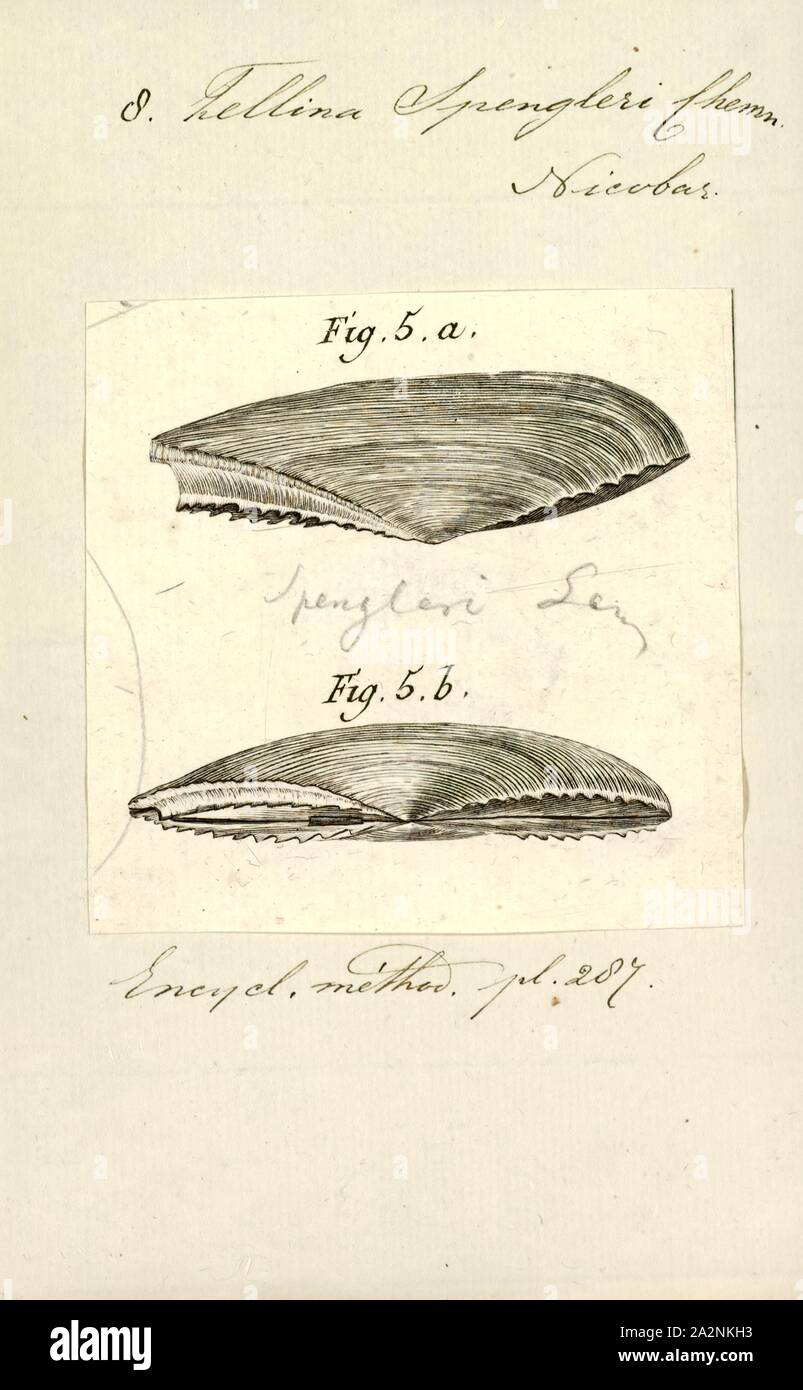 8. Tellina Spengleri Chemn.
Nicobar.
Fig. 5. a.
Spengleri
Fig. 5. b.
Encycl. méthod. pl. 287.
alamy
Image ID: 2A2NKH3
www.alamy.com